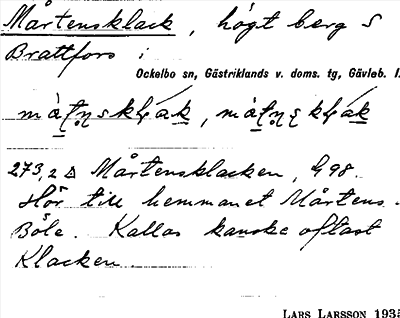 Mårtensklack, högt berg S
Brattfors i
Ockelbo sn, Gästriklands v. doms. tg, Gävleb. l.
273,2 Δ Mårtensklacken, G98.
Hör till hemmanet Mårtens-
Böle. Kallas kanske oftast
Klacken.
LARS LARSSON 1935